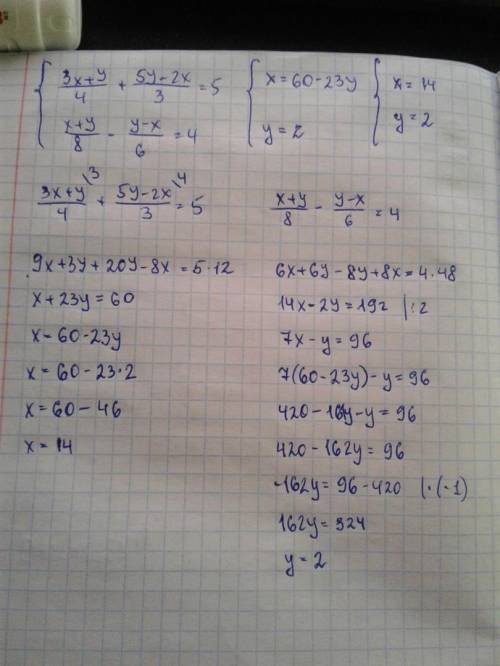 { (3x+y)/4 + (5y-2x)/3 = 5 { x = 60-23y { x = 14
(x+y)/8 - (y-x)/6 = 4 y = 2 y = 2
(3x+y)/4 \3 + (5y-2x)/3 \4 = 5
9x+3y+20y-8x = 5·12
x+23y = 60
x = 60-23y
x = 60-23·2
x = 60-46
x = 14
(x+y)/8 - (y-x)/6 = 4
6x+6y-8y+8x = 4·48
14x-2y = 192 |:2
7x-y = 96
7(60-23y)-y = 96
420-161y-y = 96
420-162y = 96
-162y = 96-420 |·(-1)
162y = 324
y = 2